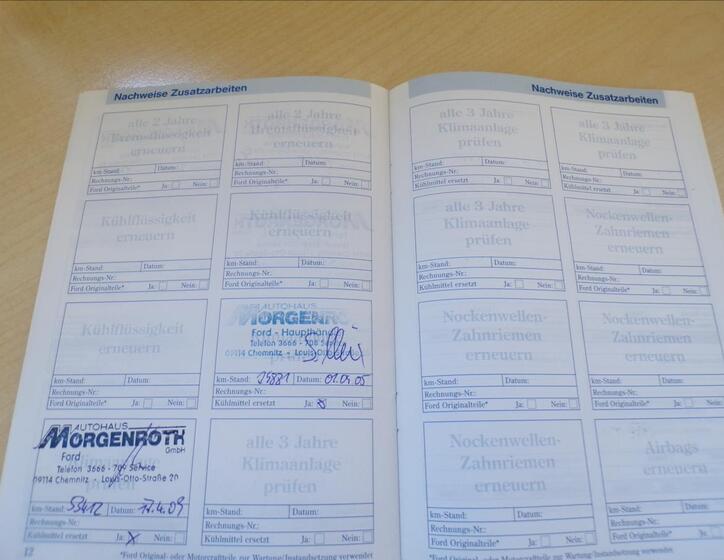 Nachweise Zusatzarbeiten
alle 2 Jahre
Bremsflüssigkeit
erneuern
km-Stand: Datum:
Rechnungs-Nr.:
Ford Originalteile* Ja: Nein:
alle 2 Jahre
Bremsflüssigkeit
erneuern
km-Stand: Datum:
Rechnungs-Nr.:
Ford Originalteile* Ja: Nein:
Kühlflüssigkeit
erneuern
km-Stand: Datum:
Rechnungs-Nr.:
Ford Originalteile* Ja: Nein:
Kühlflüssigkeit
erneuern
km-Stand: Datum:
Rechnungs-Nr.:
Ford Originalteile* Ja: Nein:
Kühlflüssigkeit
erneuern
km-Stand: Datum:
Rechnungs-Nr.:
Ford Originalteile* Ja: Nein:
AUTOHAUS
MORGENRO
Ford - Haupthänd
Telefon 3666 - 708
09114 Chemnitz - Louis-Otto
km-Stand: Datum: 01.09.05
Rechnungs-Nr.:
Kühlmittel ersetzt Ja: Nein:
AUTOHAUS
MORGENROTH
GmbH
Ford
Telefon 3666 - Service
09114 Chemnitz - Louis-Otto-Straße 20
km-Stand: 53412 Datum: 17.4.09
Rechnungs-Nr.:
Kühlmittel ersetzt Ja: X Nein:
alle 3 Jahre
Klimaanlage
prüfen
km-Stand: Datum:
Rechnungs-Nr.:
Kühlmittel ersetzt Ja: Nein:
12
*Ford Original- oder Motorcraftteile zur Wartung/Instandsetzung verwendet
Nachweise Zusatzarbeiten
alle 3 Jahre
Klimaanlage
prüfen
km-Stand: Datum:
Rechnungs-Nr.:
Kühlmittel ersetzt Ja: Nein:
alle 3 Jahre
Klimaanlage
prüfen
km-Stand: Datum:
Rechnungs-Nr.:
Kühlmittel ersetzt Ja: Nein:
alle 3 Jahre
Klimaanlage
prüfen
km-Stand: Datum:
Rechnungs-Nr.:
Kühlmittel ersetzt Ja: Nein:
Nockenwellen-
Zahnriemen
erneuern
km-Stand: Datum:
Rechnungs-Nr.:
Ford Originalteile* Ja: Nein:
Nockenwellen-
Zahnriemen
erneuern
km-Stand: Datum:
Rechnungs-Nr.:
Ford Originalteile* Ja: Nein:
Nockenwellen-
Zahnriemen
erneuern
km-Stand: Datum:
Rechnungs-Nr.:
Ford Originalteile* Ja: Nein:
Nockenwellen-
Zahnriemen
erneuern
km-Stand: Datum:
Rechnungs-Nr.:
Ford Originalteile* Ja: Nein:
Airbags
erneuern
km-Stand: Datum:
Rechnungs-Nr.:
Ford Originalteile* Ja: Nein:
*Ford Original- oder Motorcraftteile zur Wartung/Instandsetzung verwendet